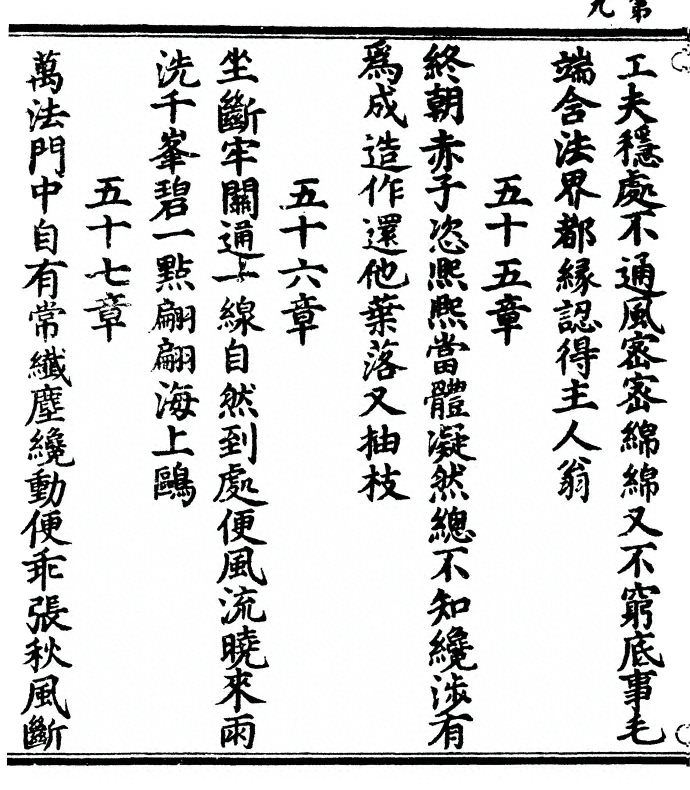 第九
工夫穩處不通風密密綿綿又不窮底事毛
端含法界都緣認得主人翁
五十五章
終朝赤子恣熙熙當體凝然總不知纔涉有
爲成造作還他葉落又抽枝
五十六章
坐斷牢關通一線自然到處便風流曉來雨
洗千峯碧一點翩翩海上鷗
五十七章
萬法門中自有常纖塵纔動便乖張秋風斷